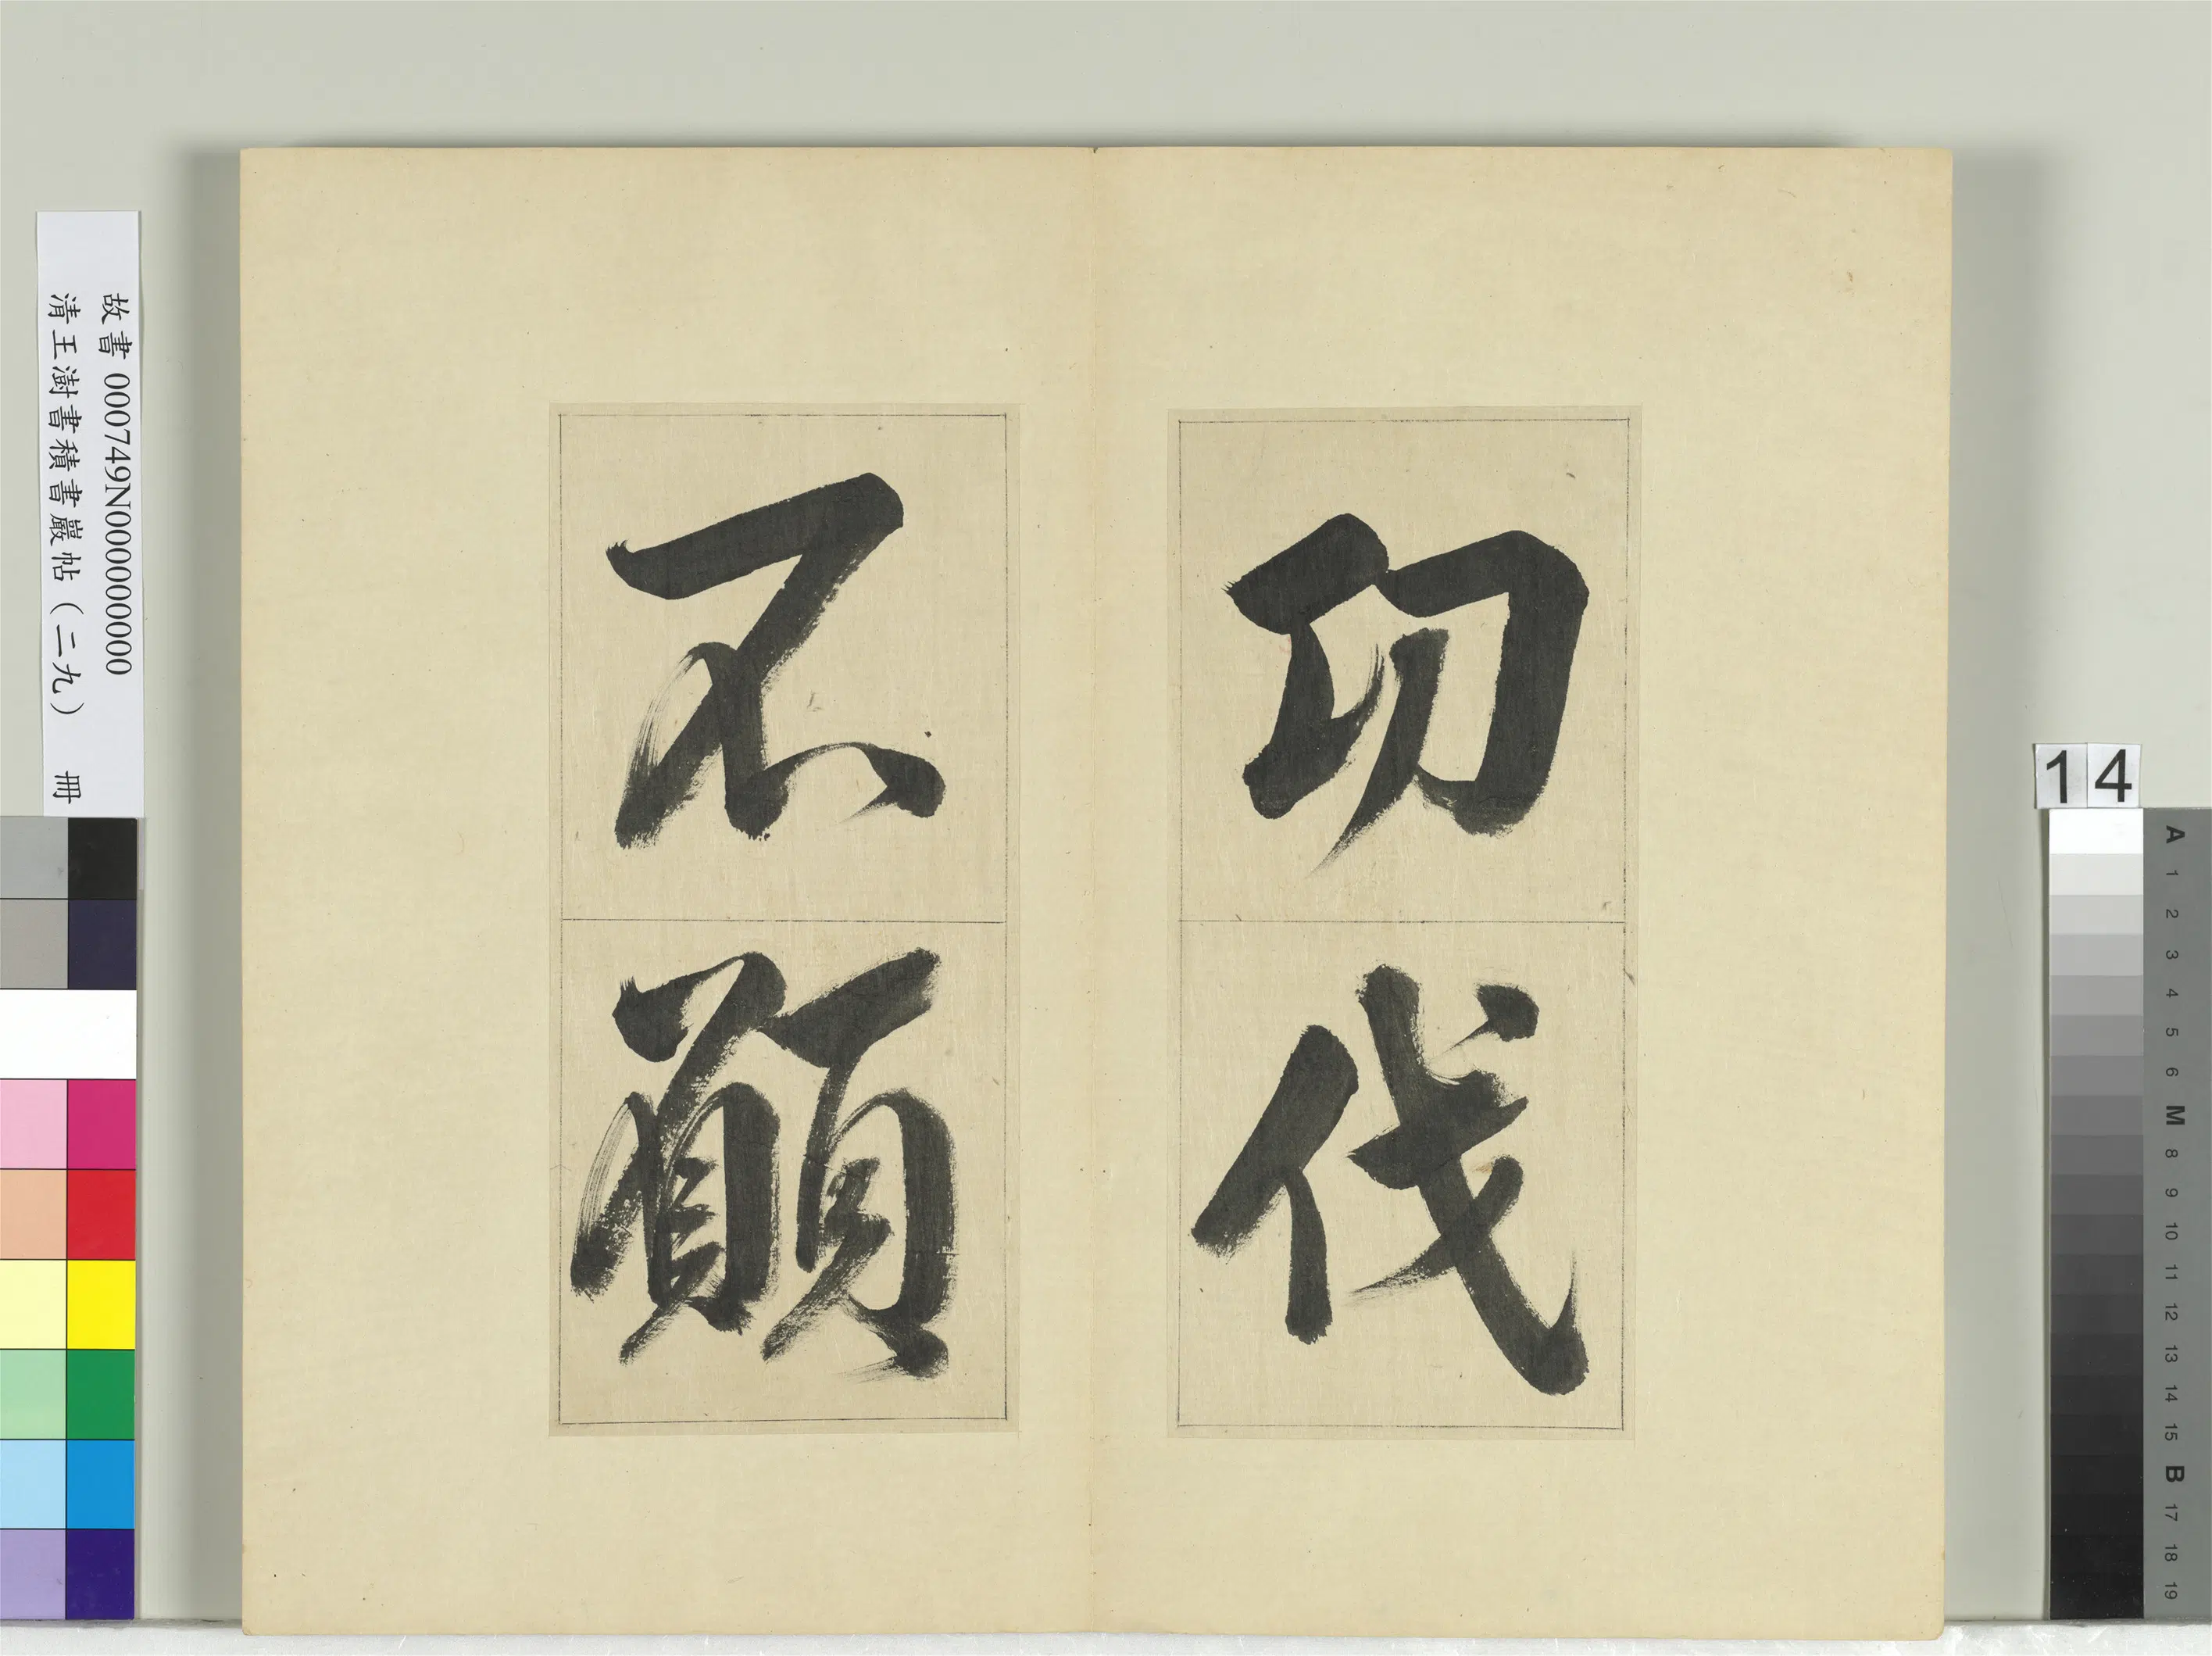 功伐
不願
故書 000749N000000000
清王澍書積書巖帖（二九） 冊
14
A 1 2 3 4 5 6 M 8 9 10 11 12 13 14 15 B 17 18 19